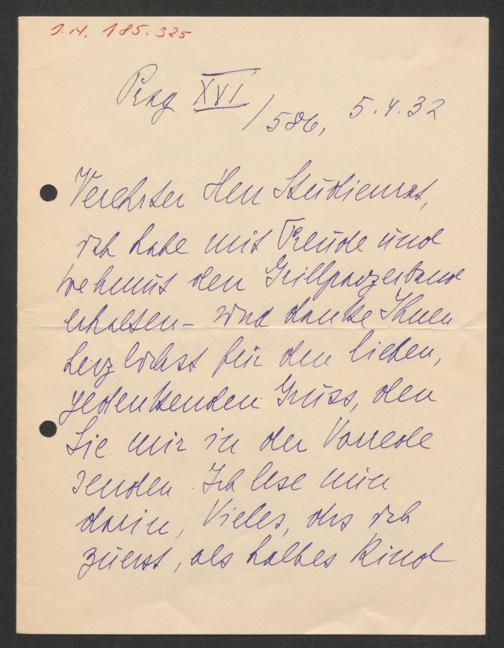 J.N. 185.325
Prag XVI/586, 5.4.32
Verehrter Herr Studienrat,
ich habe mit Freude und
Wehmut den Grillparzerband
erhalten – und danke Ihnen
herzlichst für den lieben,
gedenkenden Gruss, den
Sie mir in der Vorrede
senden. Ich lese nun
darin, Vieles, das ich
zuerst, als halbes Kind